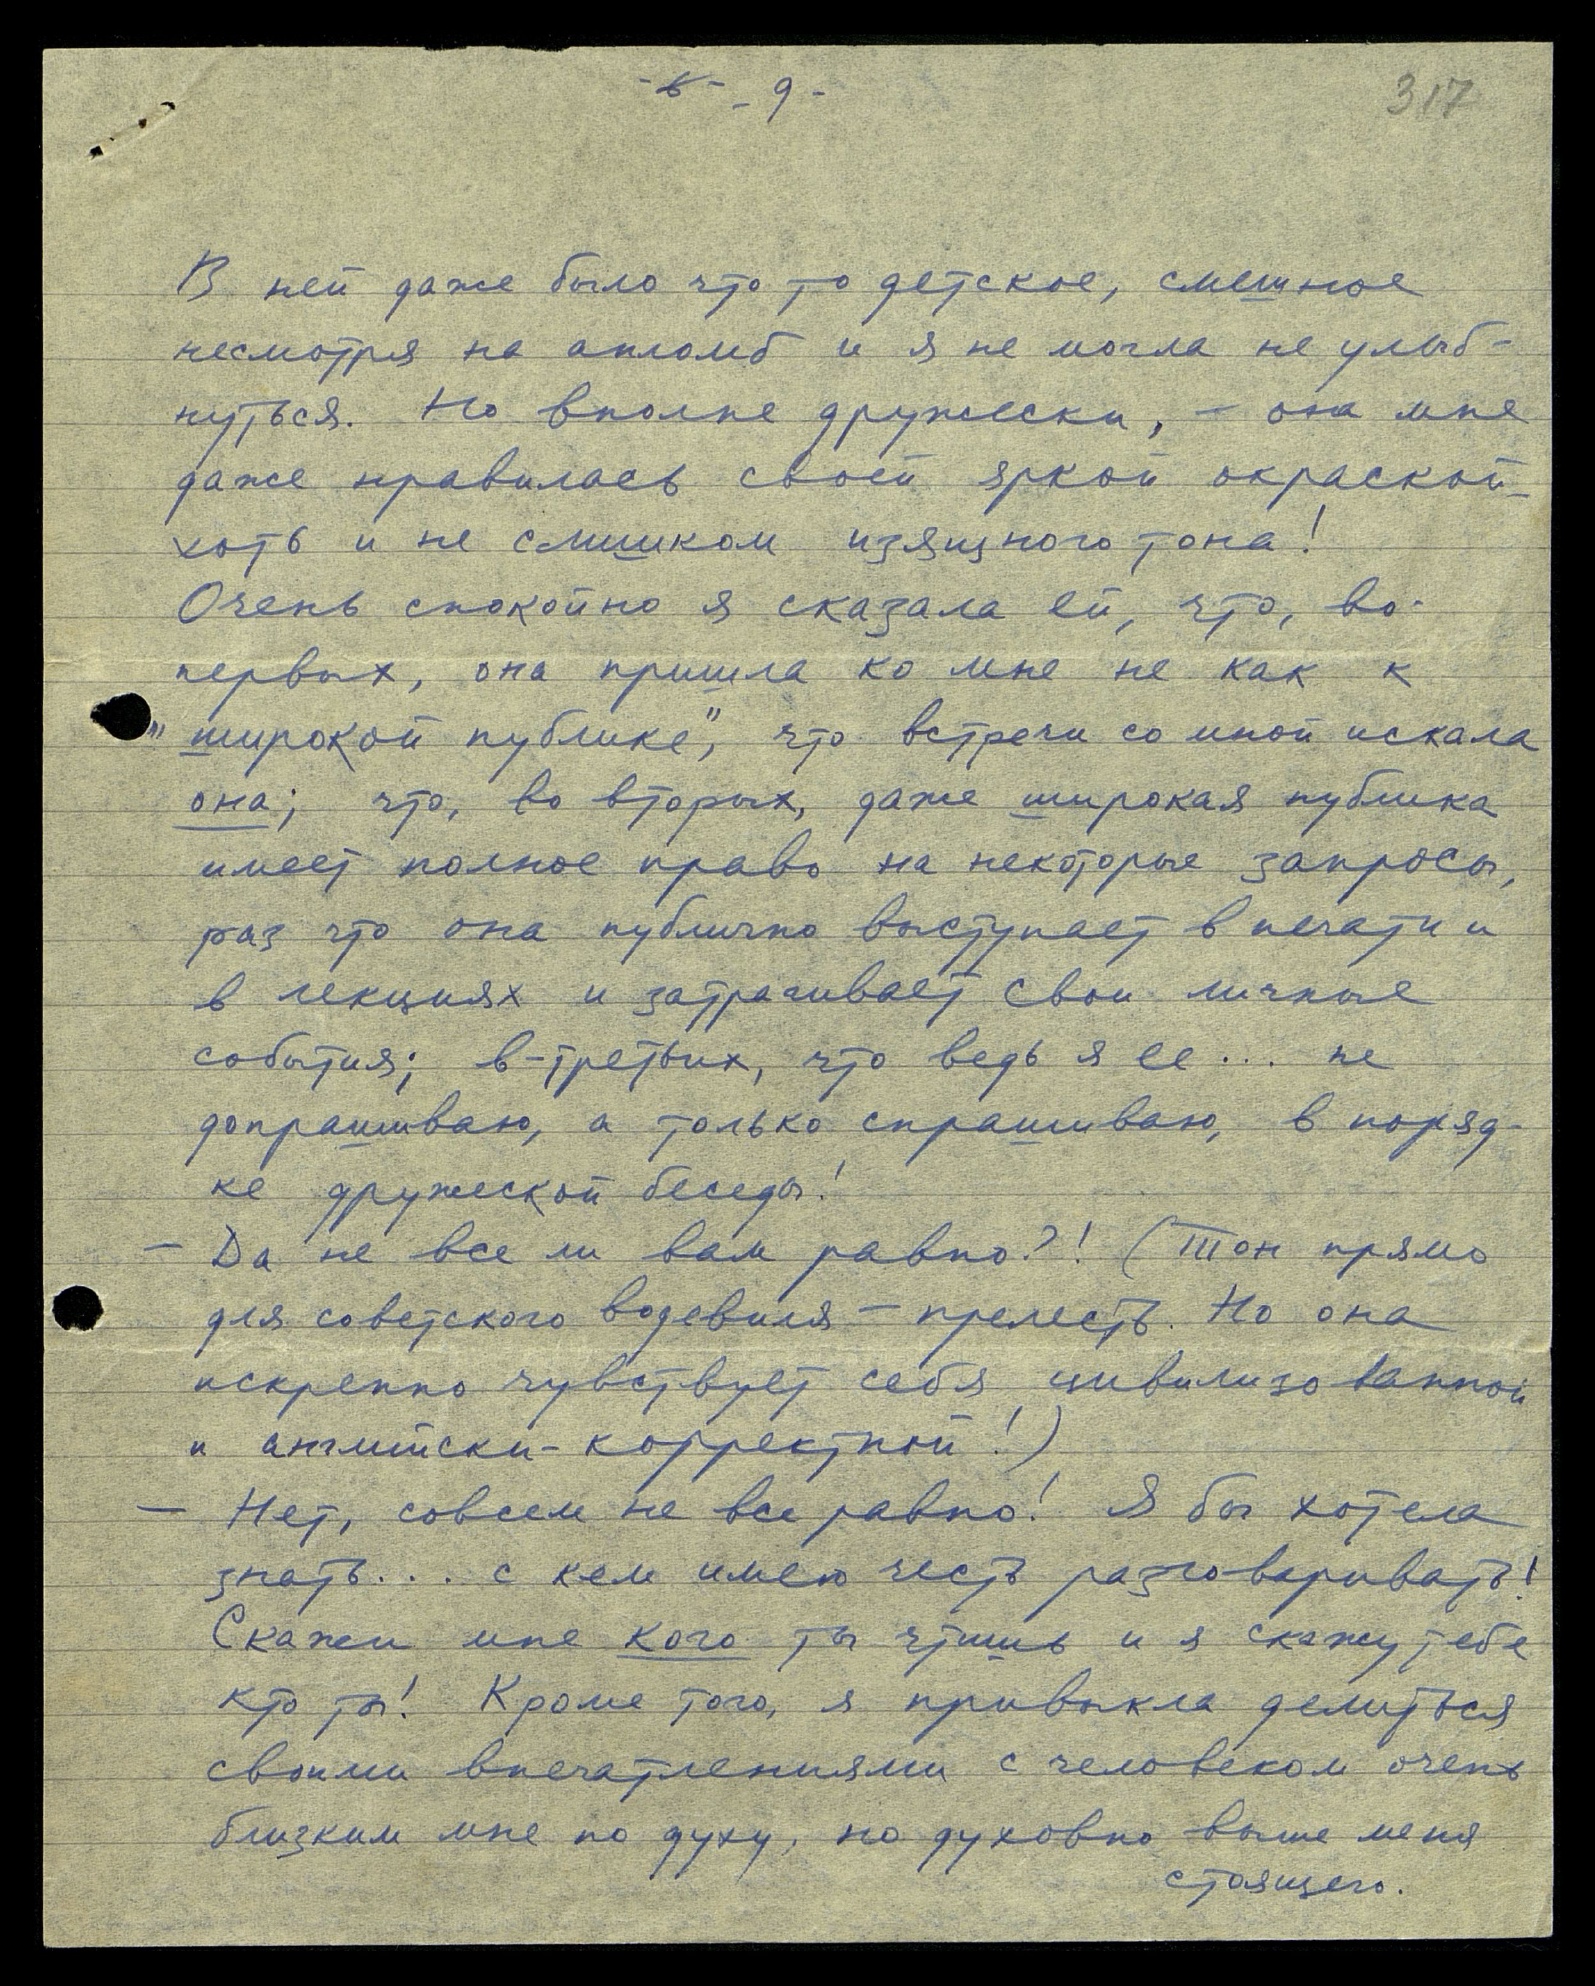 - 6 - - 9 -
317
В ней даже было что то детское, смешное
несмотря на апломб и я не могла не улыб-
нуться. Но вполне дружески, - она мне
даже нравилась своей яркой окраской -
хоть и не слишком изящного тона!
Очень спокойно я сказала ей, что, во-
первых, она пришла ко мне не как к
"широкой публике", что встречи со мной искала
она; что, во вторых, даже широкая публика
имеет полное право на некоторые запросы,
раз что она публично выступает в печати и
в лекциях и затрагивает свои личные
события; в-третьих, что ведь я ее... не
допрашиваю, а только спрашиваю, в поряд-
ке дружеской беседы!
— Да не все ли вам равно?! (Тон прямо
для советского водевиля — прелесть. Но она
искренно чувствует себя цивилизованной
и английски-корректной!)
— Нет, совсем не все равно! Я бы хотела
знать... с кем имею честь разговаривать!
Скажи мне кого ты чтишь и я скажу тебе
кто ты! Кроме того, я привыкла делиться
своими впечатлениями с человеком очень
близким мне по духу, но духовно выше меня
стоящего.